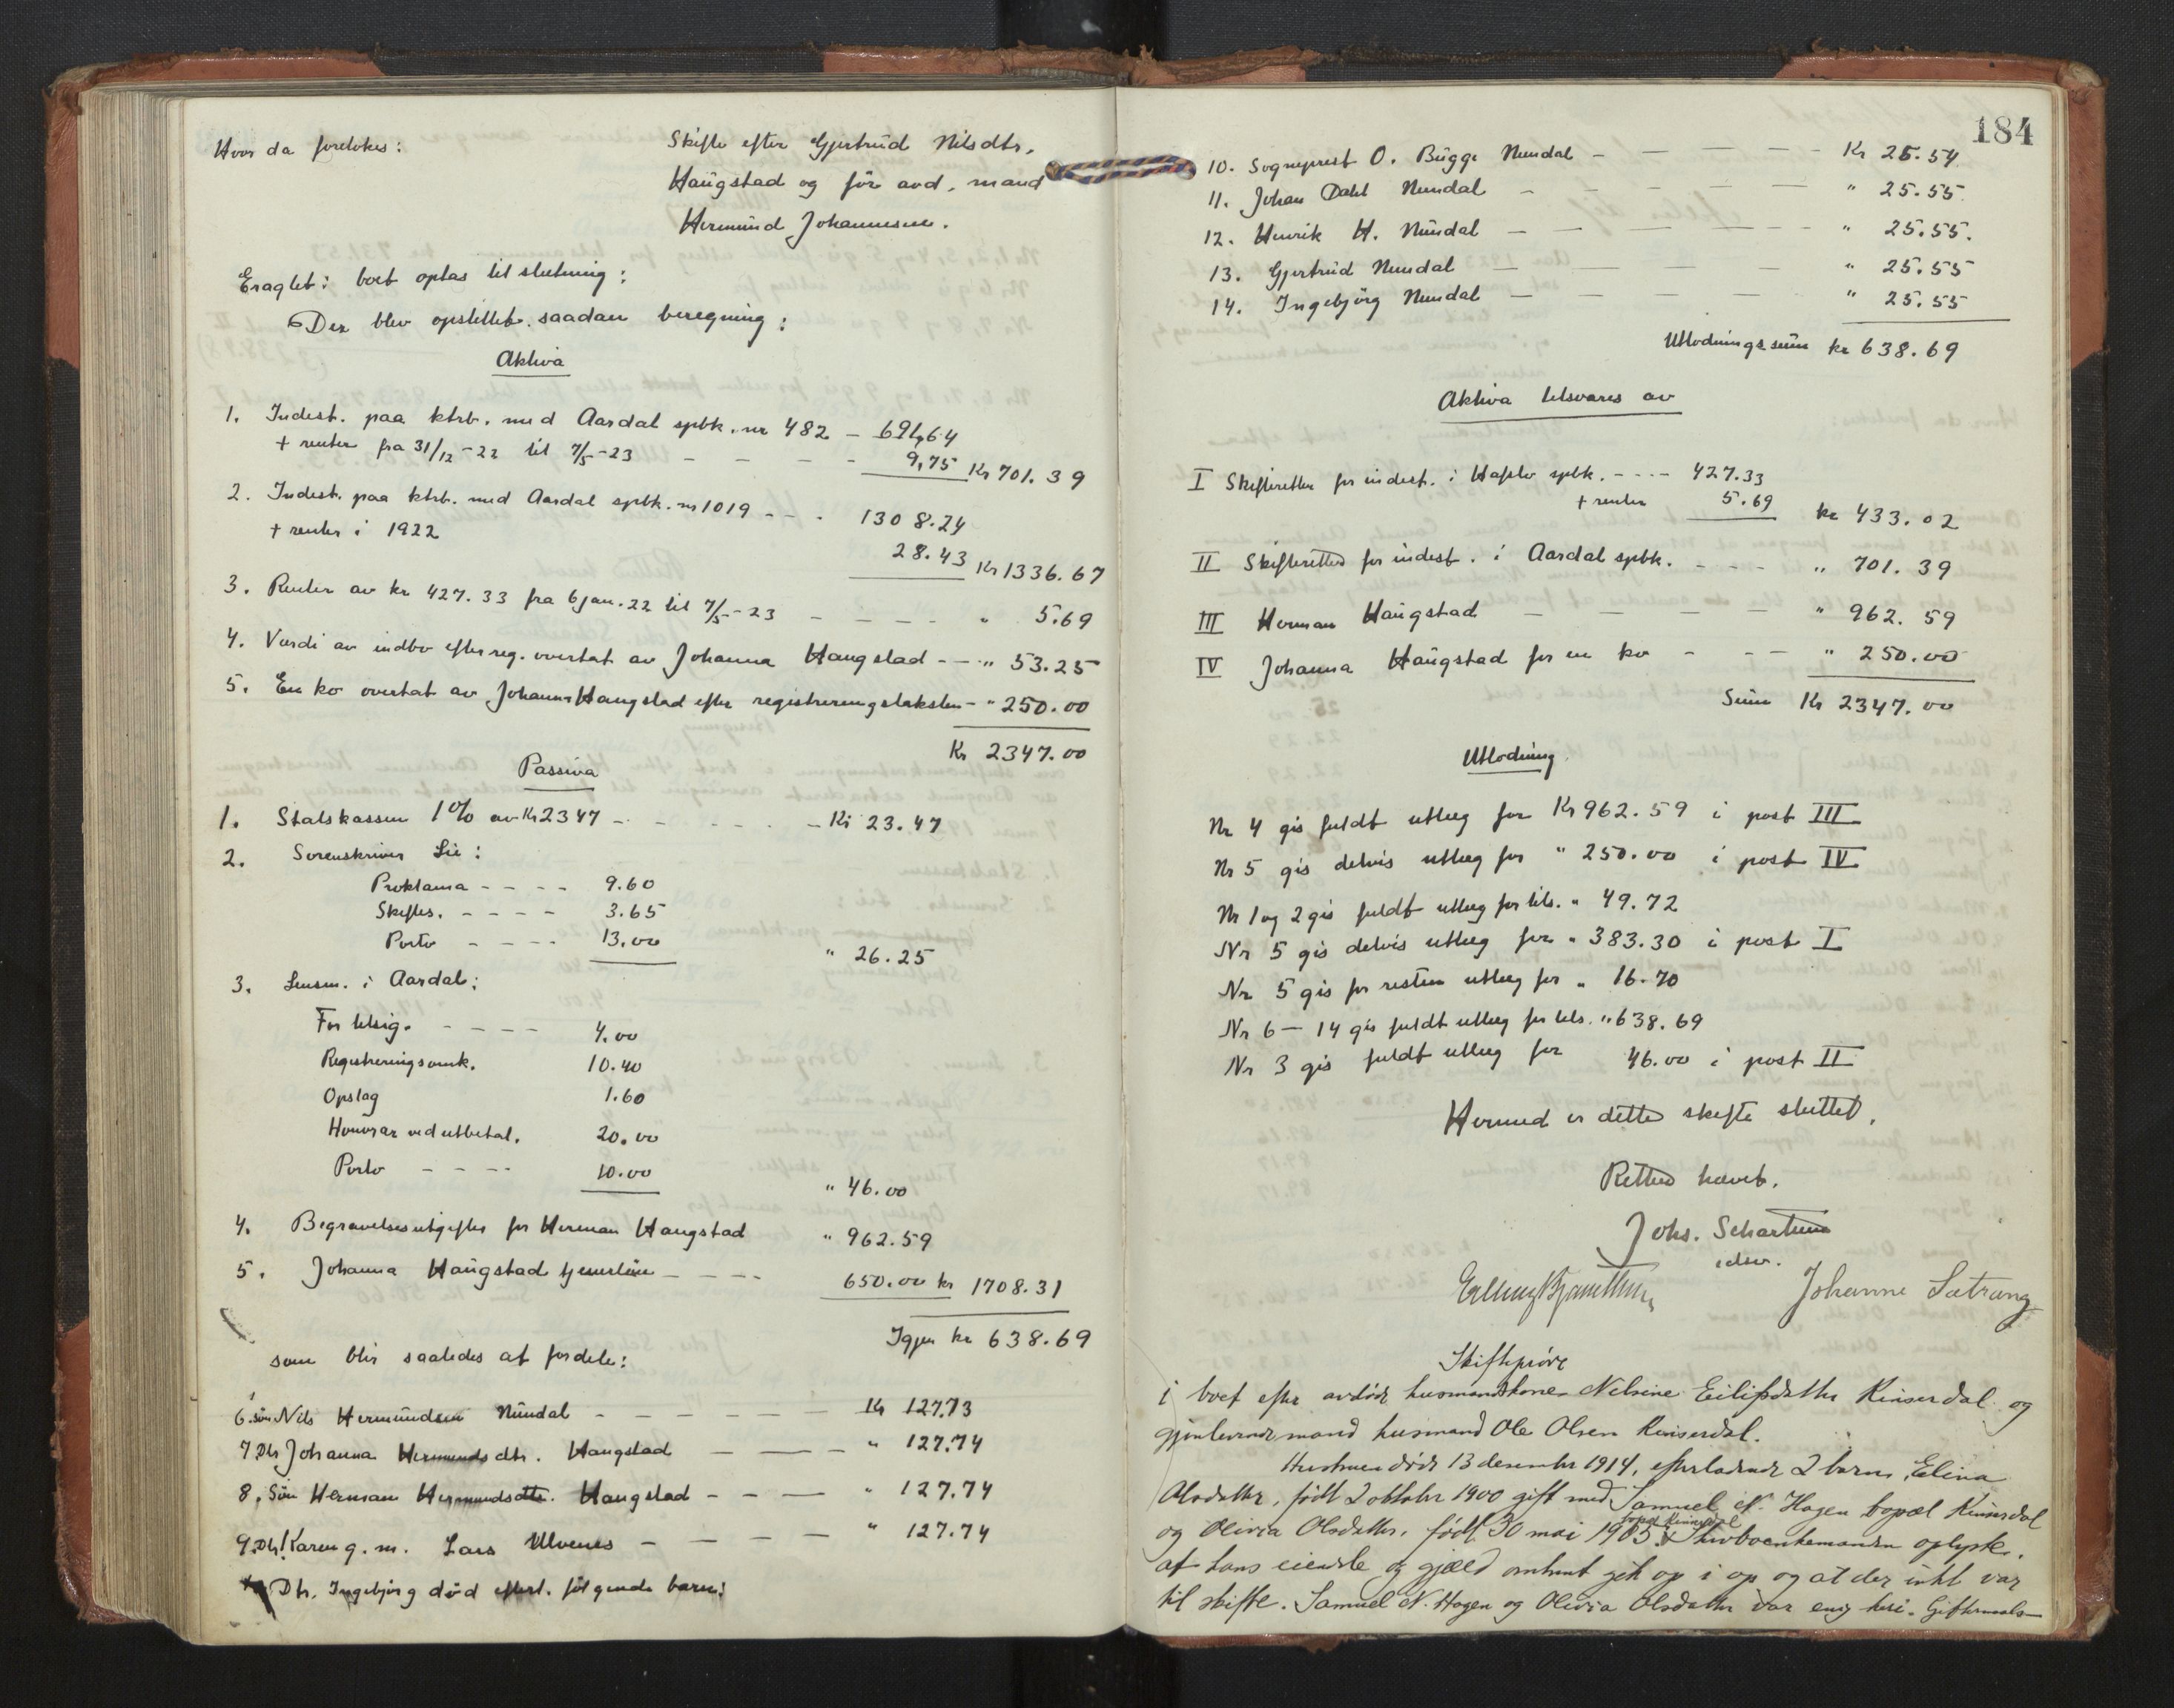 Hvor da foretokes:
Skifte efter Gjertrud Nilsdtr.
Haugstad og før avd. mand
Hermund Johannesen.
Eragtet: boet optas til slutning:
Der blev opstillet saadan beregning:
Aktiva
1. Indest. paa ktrb. med Aardal spbk. nr 482 — 691,64
+ renter fra 31/12-22 til 7/5-23 - - - - 9,75 Kr 701.39
2. Indest. paa ktrb. med Aardal spbk. nr 1019 - - - 1308.24
+ renter i 1922 28.43 Kr 1336.67
3. Renter av kr 427.33 fra 6 jan. 22 til 7/5-23 - - - - " 5.69
4. Verdi av indbo efter reg. overtat av Johanna Haugstad - - " 53.25
5. En ko overtat av Johanna Haugstad efter registreringstaksten - " 250.00
Kr 2347.00
Passiva
1. Statskassen 1% av Kr 2347 - - - - - Kr 23.47
2. Sorenskriver Lie:
Proklama - - - - 9.60
Skiftes. - - - - 3.65
Porto - - - - 13.00
" 26.25
3. Lensm. i Aardal:
For tilsig. - - - - 4.00
Registreringsomk. 10.40
Opslag 1.60
Honorar ved utbetal. 20.00
Porto - - - - 10.00
" 46.00
4. Begravelsesutgifter for Herman Haugstad " 962.59
5. Johanna Haugstad tjenerløn - - - - 650.00 kr 1708.31
Igjen kr 638.69
som blir saaledes at fordele:
6. søn Nils Hermundsen Nundal - - - - - - Kr 127.73
7. Dtr Johanna Hermundsdtr. Haugstad - - - " 127.74
8. Søn Herman Hermundsdtr. Haugstad - - - " 127.74
9. Dtr. Karen g. m. Lars Ulvenes - - - - " 127.74
Dtr. Ingebjørg død efterl. følgende barn:
184
10. Sogneprest O. Bugge Nundal - - - - - Kr 25.54
11. Johan Dahl Nundal - - - - - " 25.55
12. Henrik H. Nundal - - - - - " 25.55.
13. Gjertrud Nundal - - - - " 25.55
14. Ingebjørg Nundal - - - - " 25.55
Utlodningssum kr 638.69
Aktiva tilsvares av
I Skifteretten for indest. i Hafslo spbk. - - - - 427.33
+ renter 5.69 kr 433.02
II Skifteretten for indest. i Aardal spbk. - - - " 701.39
III Herman Haugstad - - - - " 962.59
IV Johanna Haugstad for en ko - - - " 250.00
Sum Kr 2347.00
Utlodning
Nr 4 gis fuldt utlæg for Kr 962.59 i post III
Nr 5 gis delvis utlæg for " 250.00 i post IV
Nr 1 og 2 gis fuldt utlæg for tils. " 49.72
Nr 5 gis delvis utlæg for " 383.30 i post I
Nr 5 gis for resten utlæg for " 16.70
Nr 6 — 14 gis fuldt utlæg for tils. " 638.69
Nr 3 gis fuldt utlæg for 46.00 i post II
Hermed er dette skifte sluttet.
Retten hævet.
Johs. Schartum
edsv.
Johanne Sætrang
Skifteprøve
i boet efter avdøde husmandskone Nelsine Eilifsdatter Kinserdal og
gjenlevende mand husmand Ole Olsen Kinserdal.
Hustruen døde 13 desember 1914, efterladende 2 barn, Elina
Olsdatter, født 2 oktober 1900 gift med Samuel N. Hagen bopæl Kinserdal
bopæl Kinserdal
og Olivia Olsdatter, født 30 mai 1905. Skivboenkemanden oplyste,
at hans eiendele og gjæld omtrent gik op i op og at der intet var
til skifte. Samuel N. Hagen og Olivia Olsdatter var enig heri. Giftermaals-